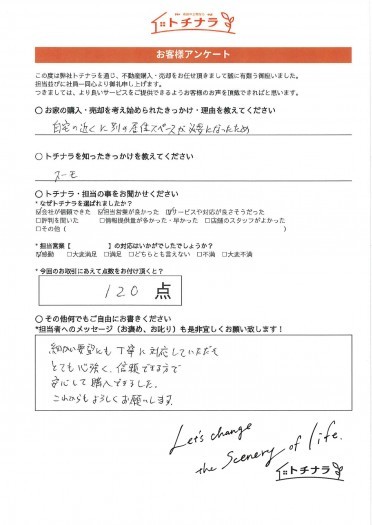 トチナラ
お客様アンケート
この度は弊社トチナラを通じ、不動産購入・売却をお任せ頂きまして誠に有難う御座いました。
担当並びに社員一同心より御礼申し上げます。
つきましては、より良いサービスをご提供できるようお客様のお声を頂戴できればと思います。
○ お家の購入・売却を考え始められたきっかけ・理由を教えてください
自宅の近くに別の居住スペースが必要になったため
○ トチナラを知ったきっかけを教えてください
スーモ
○ トチナラ・担当の事をお聞かせください
* なぜトチナラを選ばれましたか?
☑会社が信頼できた ☑担当営業が良かった ☑サービスや対応が良さそうだった
□評判を聞いた □情報提供量が多かった・早かった □店舗のスタッフがよかった
□その他 ( )
* 担当営業【 】の対応はいかがでしたでしょうか?
☑感動 □大変満足 □満足 □どちらとも言えない □不満 □大変不満
* 今回のお取引にあえて点数をお付け頂くと?
120 点
○ その他何でもご自由にお書きください
*担当者へのメッセージ(お褒め、お叱り)も是非宜しくお願い致します!
細かい要望にも丁寧に対応していただき
とても心強く、信頼できる方で
安心して購入できました。
これからもよろしくお願いします。
Let's change
the Scenery of life.
トチナラ